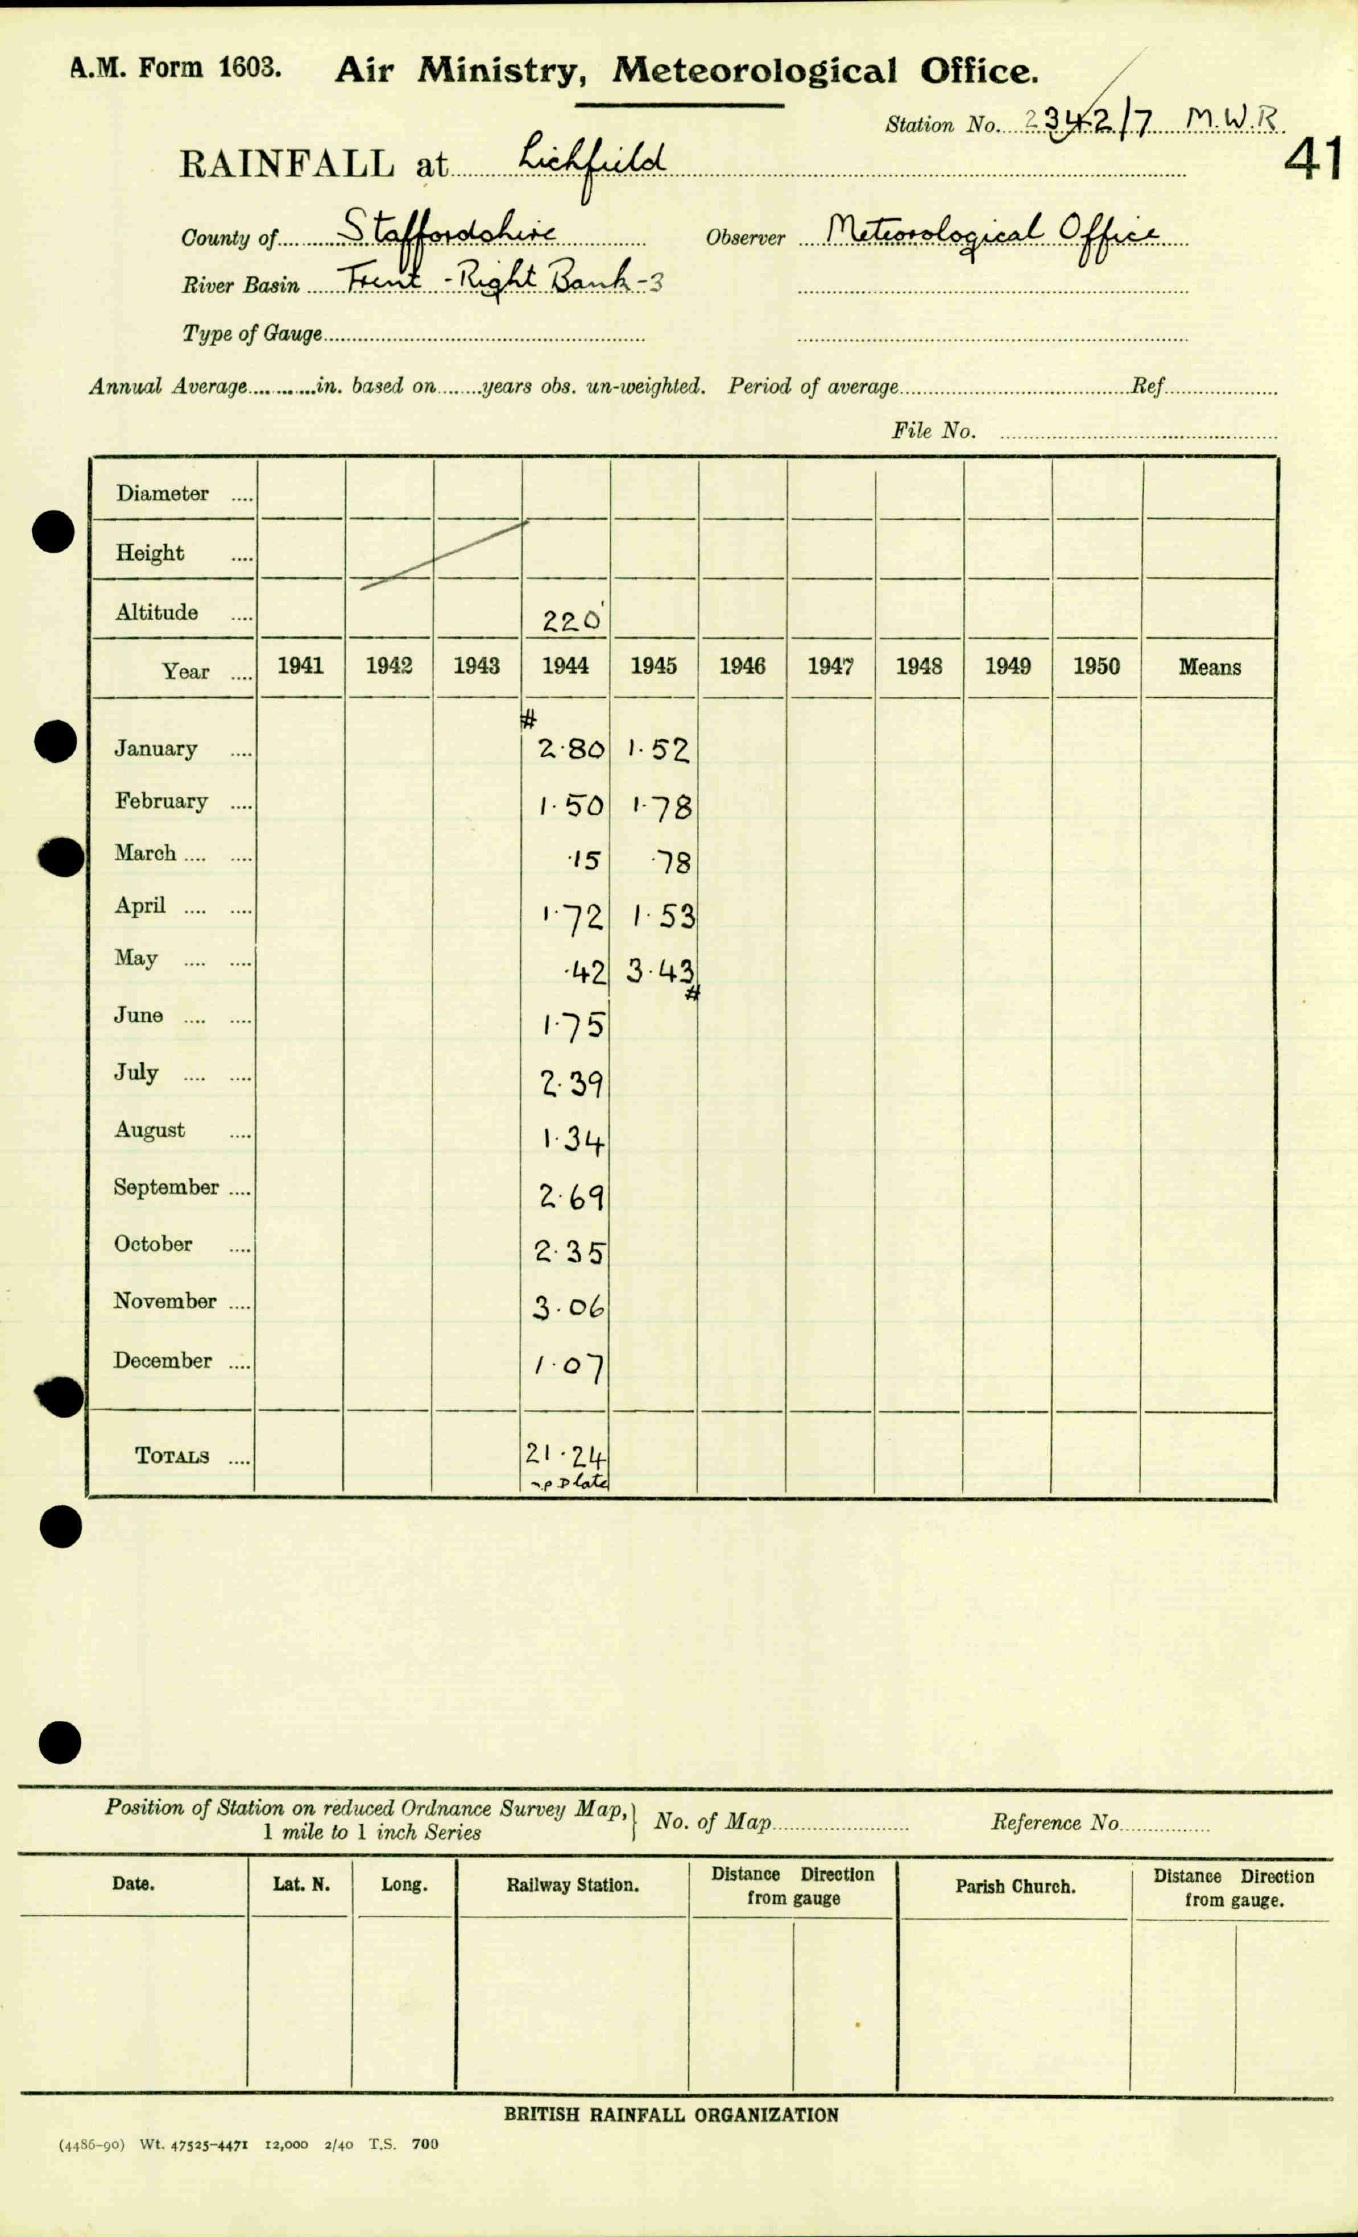 A.M. Form 1603. Air Ministry, Meteorological Office.
Station No. 2342/7 M.W.R.
41
RAINFALL at Lichfield
County of Staffordshire Observer Meteorological Office
River Basin Trent - Right Bank - 3
Type of Gauge
Annual Average in. based on years obs. un-weighted. Period of average Ref
File No.
Diameter ....
Height ....
Altitude .... 220'
Year .... 1941 1942 1943 1944 1945 1946 1947 1948 1949 1950 Means
#
January .... 2.80 1.52
February .... 1.50 1.78
March .... .... .15 .78
April .... .... 1.72 1.53
May .... .... .42 3.43
#
June .... .... 1.75
July .... .... 2.39
August .... 1.34
September .... 2.69
October .... 2.35
November .... 3.06
December .... 1.07
TOTALS .... 21.24
late
Position of Station on reduced Ordnance Survey Map, } No. of Map Reference No.
1 mile to 1 inch Series
Date. Lat. N. Long. Railway Station. Distance Direction from gauge Parish Church. Distance Direction from gauge.
BRITISH RAINFALL ORGANIZATION
(4486-90) Wt. 47525-4471 12,000 2/40 T.S. 700